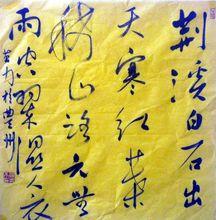 荆溪白石出
天寒红葉
稀山路元無
雨空翠湿人衣
於州